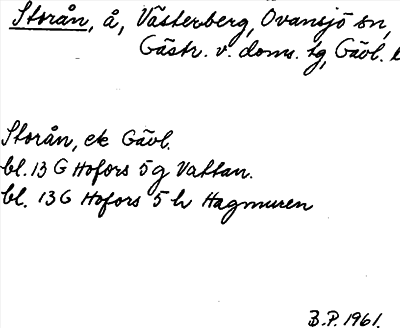 Storån, å, Västerberg, Ovansjö sn,
Gästr. v. doms. tg, Gävl. l
Storån, ek Gävl.
bl. 13 G Hofors 5 g Vattan.
bl. 13 G Hofors 5 h Hagmuren
B.P. 1961.